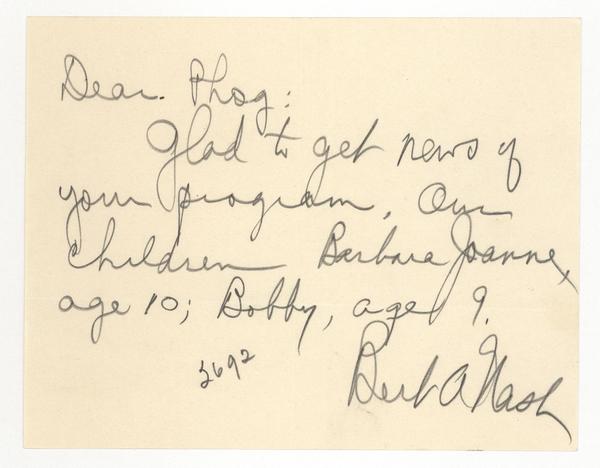 Dear Phog:
Glad to get news of
your program. Our
children Barbara Joanne,
age 10; Bobby, age 9.
Bert A Nash
3692